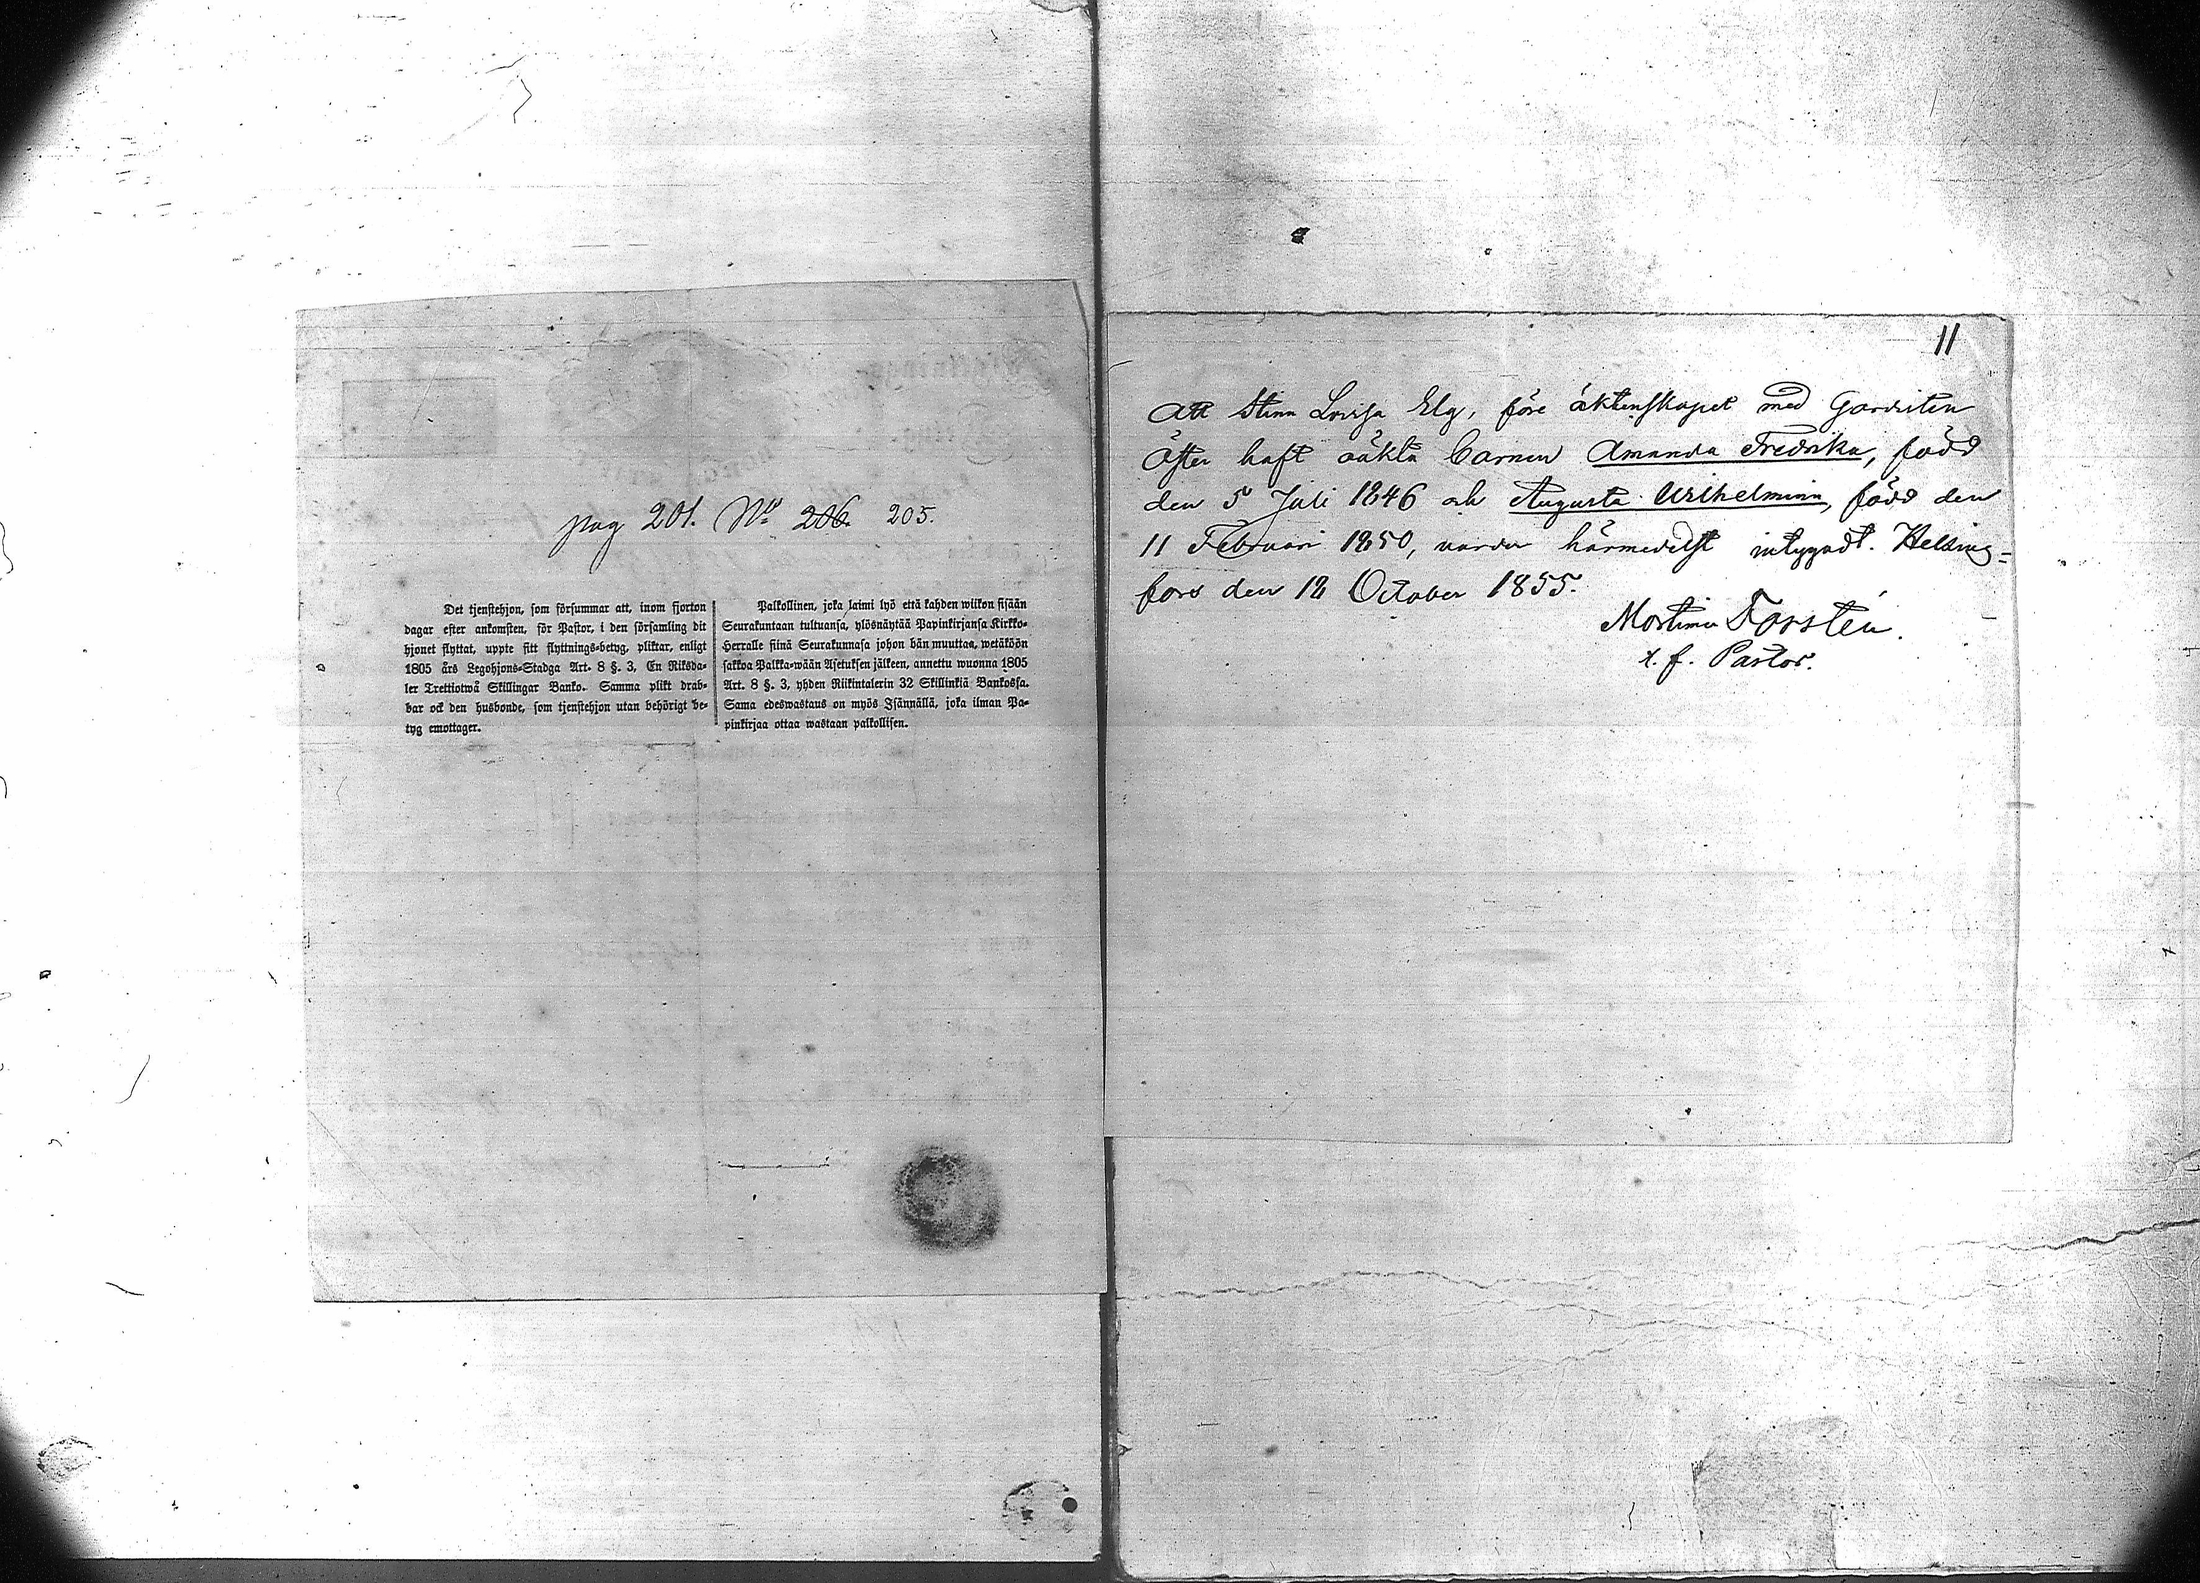 pag 201. No 206. 205.
Det tjenstehjon, som försummar att, inom fjorton
dagar efter ankomsten, för Pastor, i den församling dit
hjonet flyttat, uppte sitt flyttnings-betyg, pliktar, enligt
1805 års Legohjons-Stadga Art. 8 §. 3, En Riksda-
ler Trettiotwå Skillingar Banko. Samma plikt drab-
bar ock den husbonde, som tjenstehjon utan behörigt be-
tyg emottager.
Palkollinen, joka laimi lyö että kahden wiikon sisään
Seurakuntaan tultuansa, ylösnäytää Papinkirjansa Kirkko-
Herralle siinä Seurakunnasa johon hän muuttaa, wetäköön
sakkoa Palkka-wään Asetuksen jälkeen, annettu wuonna 1805
Art. 8 §. 3, yhden Riikintalerin 32 Skillinkiä Bankossa.
Sama edeswastaus on myös Isännällä, joka ilman Pa-
pinkirjaa ottaa wastaan palkollisen.
11
Att Stina Lovisa Elg, före äktenskapet med Gardisten
Öster haft oäkta barnen Amanda Fredrika, född
den 5 Juli 1846 och Augusta Wilhelmina, född den
11 Februari 1850, varder härmedelst intygadt. Helsing=
fors den 12 October 1855.
Mortimer Forstén.
t. f. Pastor.